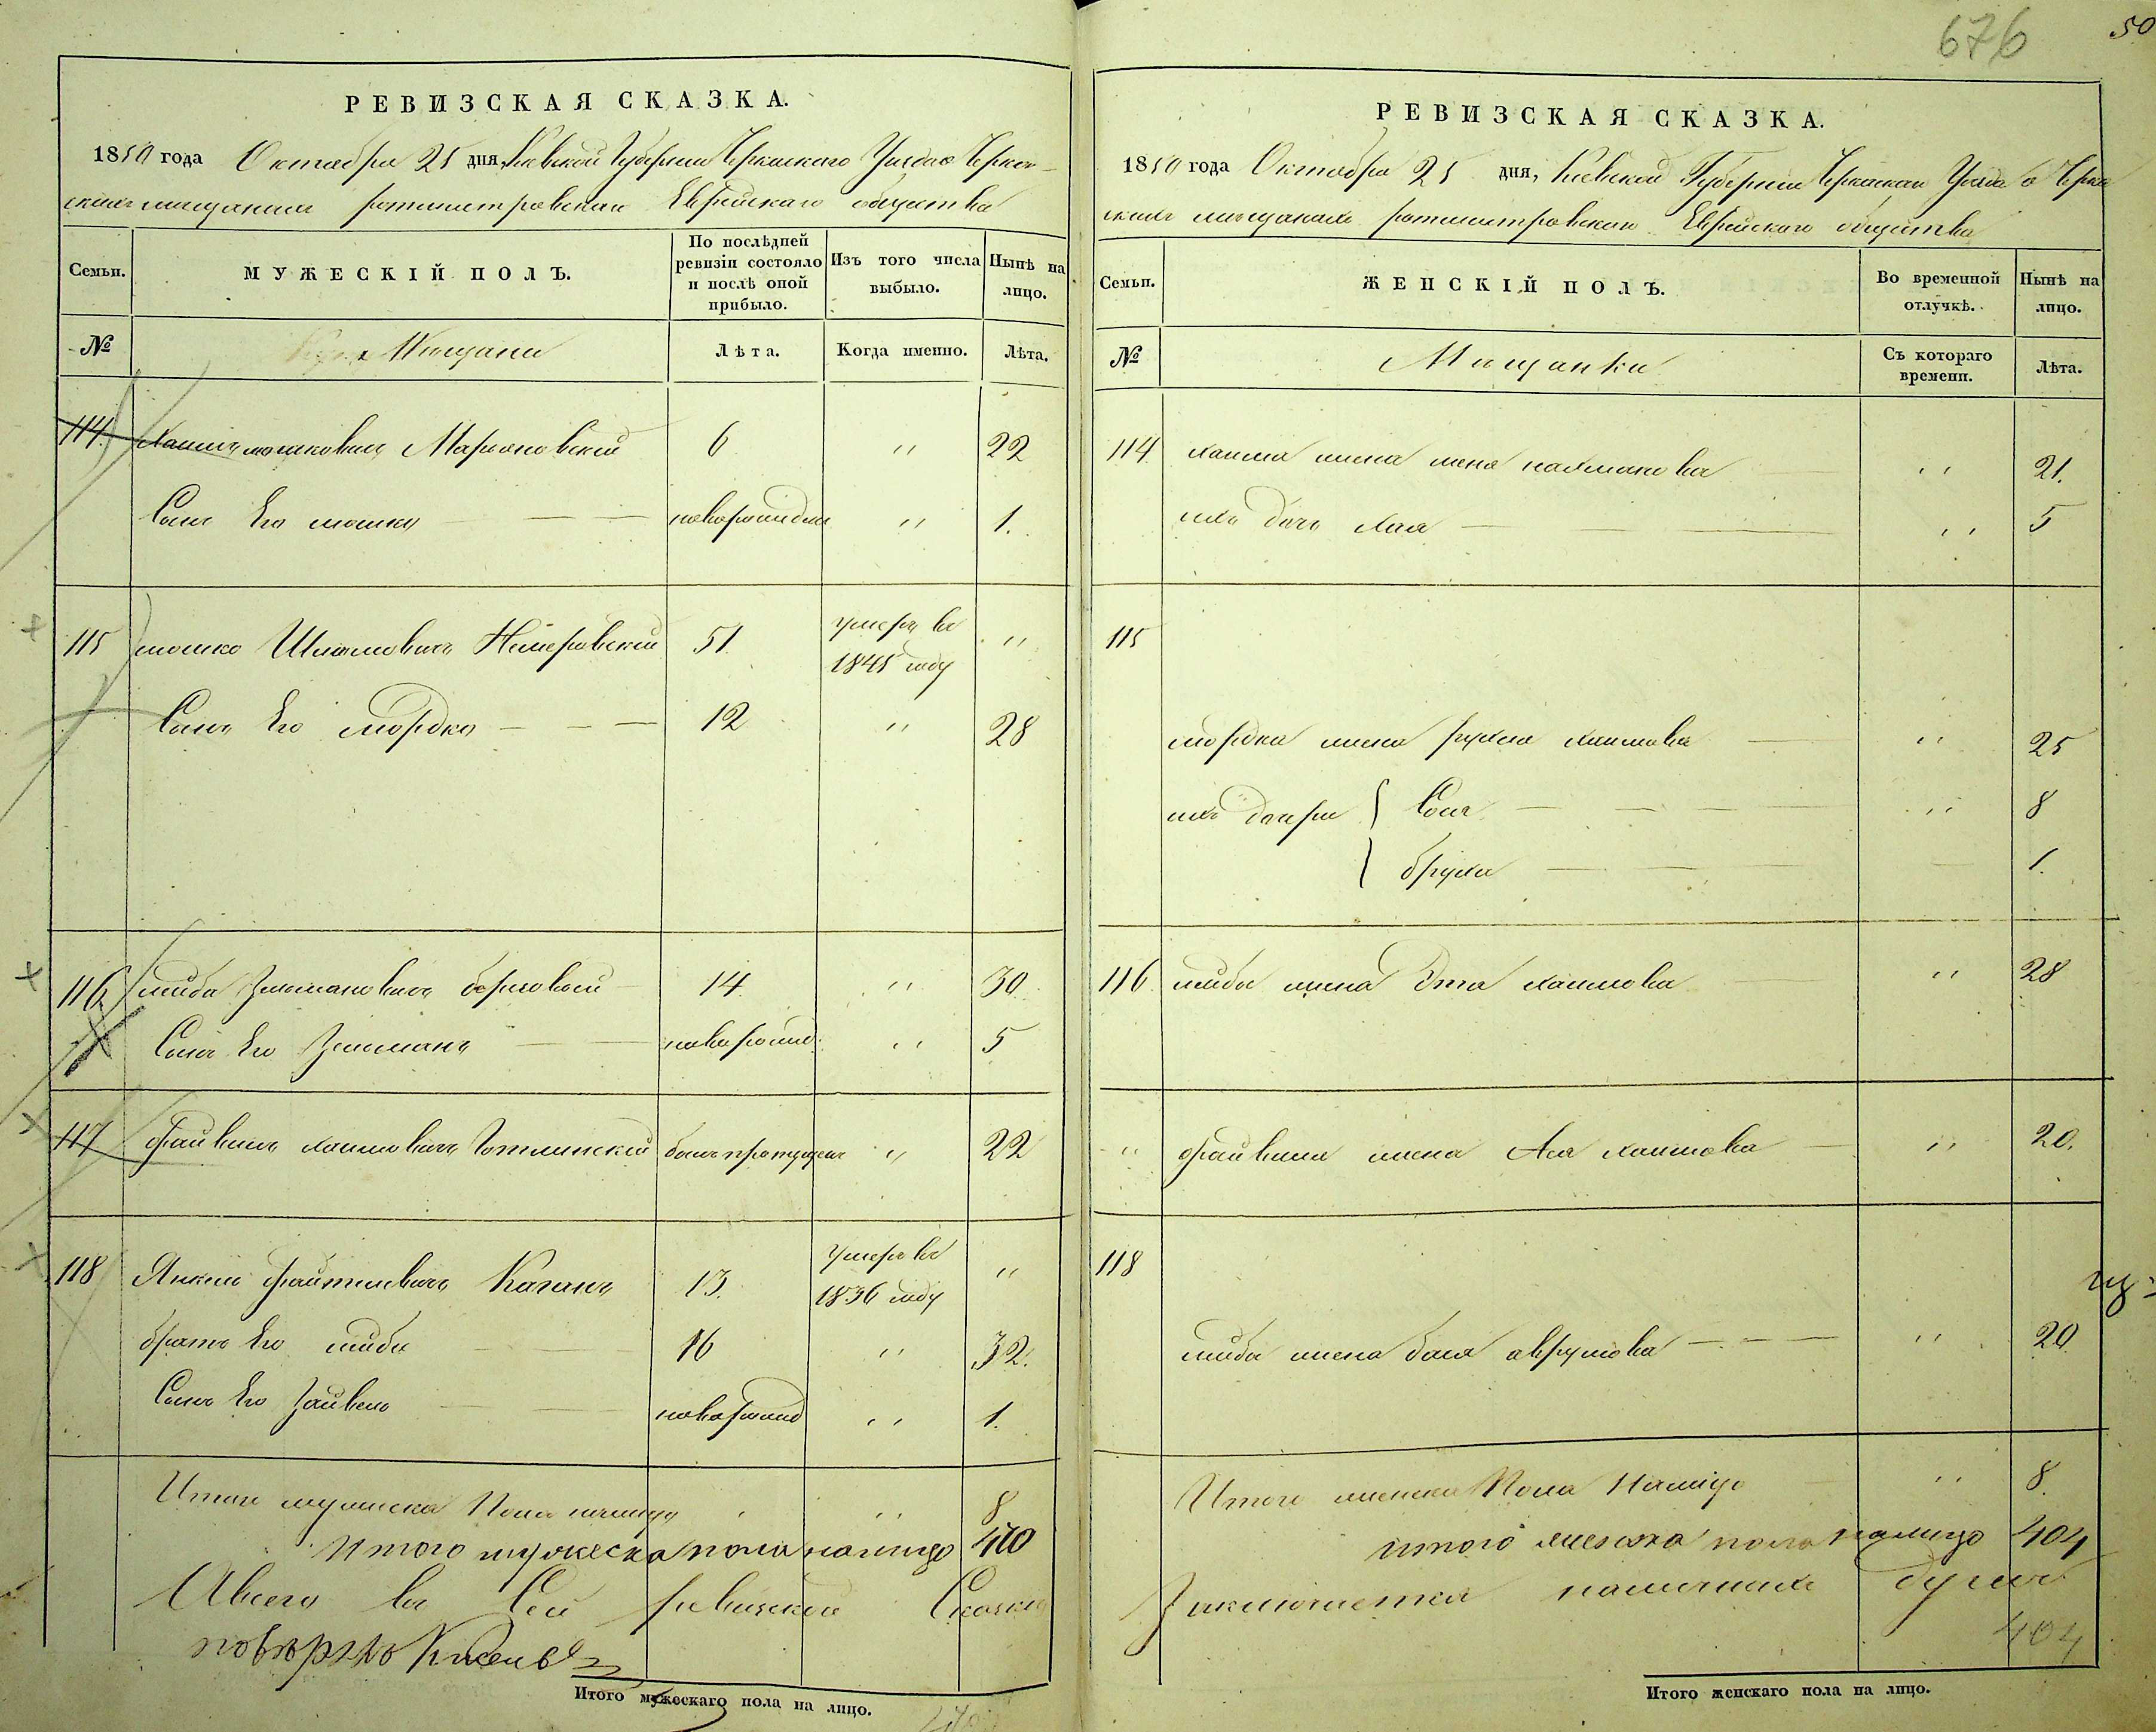 676
50
РЕВИЗСКАЯ СКАЗКА.
1850 года Октября 25 дня, Киевской Губернiи Черкаскаго Уезда о Черкас-
скихъ мещанахъ ротмистровскаго Еврейскаго общества
Семьи.
МУЖЕСКІЙ ПОЛЪ.
По послѣдней ревизіи состояло и послѣ оной прибыло.
Изъ того числа выбыло.
Нынѣ на лицо.
№
Мещани
Лѣта.
Когда именно.
Лѣта.
114. Хаимъ мошковичъ Марьяновскiй 6 " 22
Сынъ Его мошко — — новорожден " 1.
115 мошко Шлиомовичъ Немеровскiй 51 умеръ въ 1845 году "
Сынъ Его мордко — — — 12 " 28
116 лейба Зельмановичъ береговый 14 " 30
Сынъ Его Зельманъ — — новорожд. " 5
117 файвишъ хаимовичъ Готлинскiй былъ пропущен " 22
118 Янкель файтелевичъ Каганъ 13. умеръ въ 1836 году "
братъ Его лейба — — 16 " 32.
Сынъ Его Зайвель — — новорожд " 1.
Итого мужеска Пола налицо " 8
Итого мужеска пола налицо 410
А всего въ Сей ревизской Сказки
повѣрялъ
Итого мужескаго пола на лицо.
РЕВИЗСКАЯ СКАЗКА.
1850 года Октября 25 дня, Киевской Губернiи Черкаскаго Уезда о Черка
скихъ мещанахъ ротмистровскаго Еврейскаго общества
Семьи.
ЖЕНСКІЙ ПОЛЪ.
Во временной отлучкѣ.
Нынѣ на лицо.
№
Мещанки
Съ котораго времени.
Лѣта.
114 хаима жена меня нахманова " 21.
ихъ дочь хая — — — " 5
115
мордка жена рухля хаимова — " 25
ихъ дочери { Сося — — — — " 8
{ бруха — — — — 1.
116. лейбы жена Эта хаимова " 28
" файвиша жена Ася хаимова — " 20.
118
лейбы жена бася аврумова — — — " 20
Итого женска Пола Налицо " 8.
итого женска пола налицо 404
Заключается наличныхъ душъ
404
Итого женскаго пола на лицо.